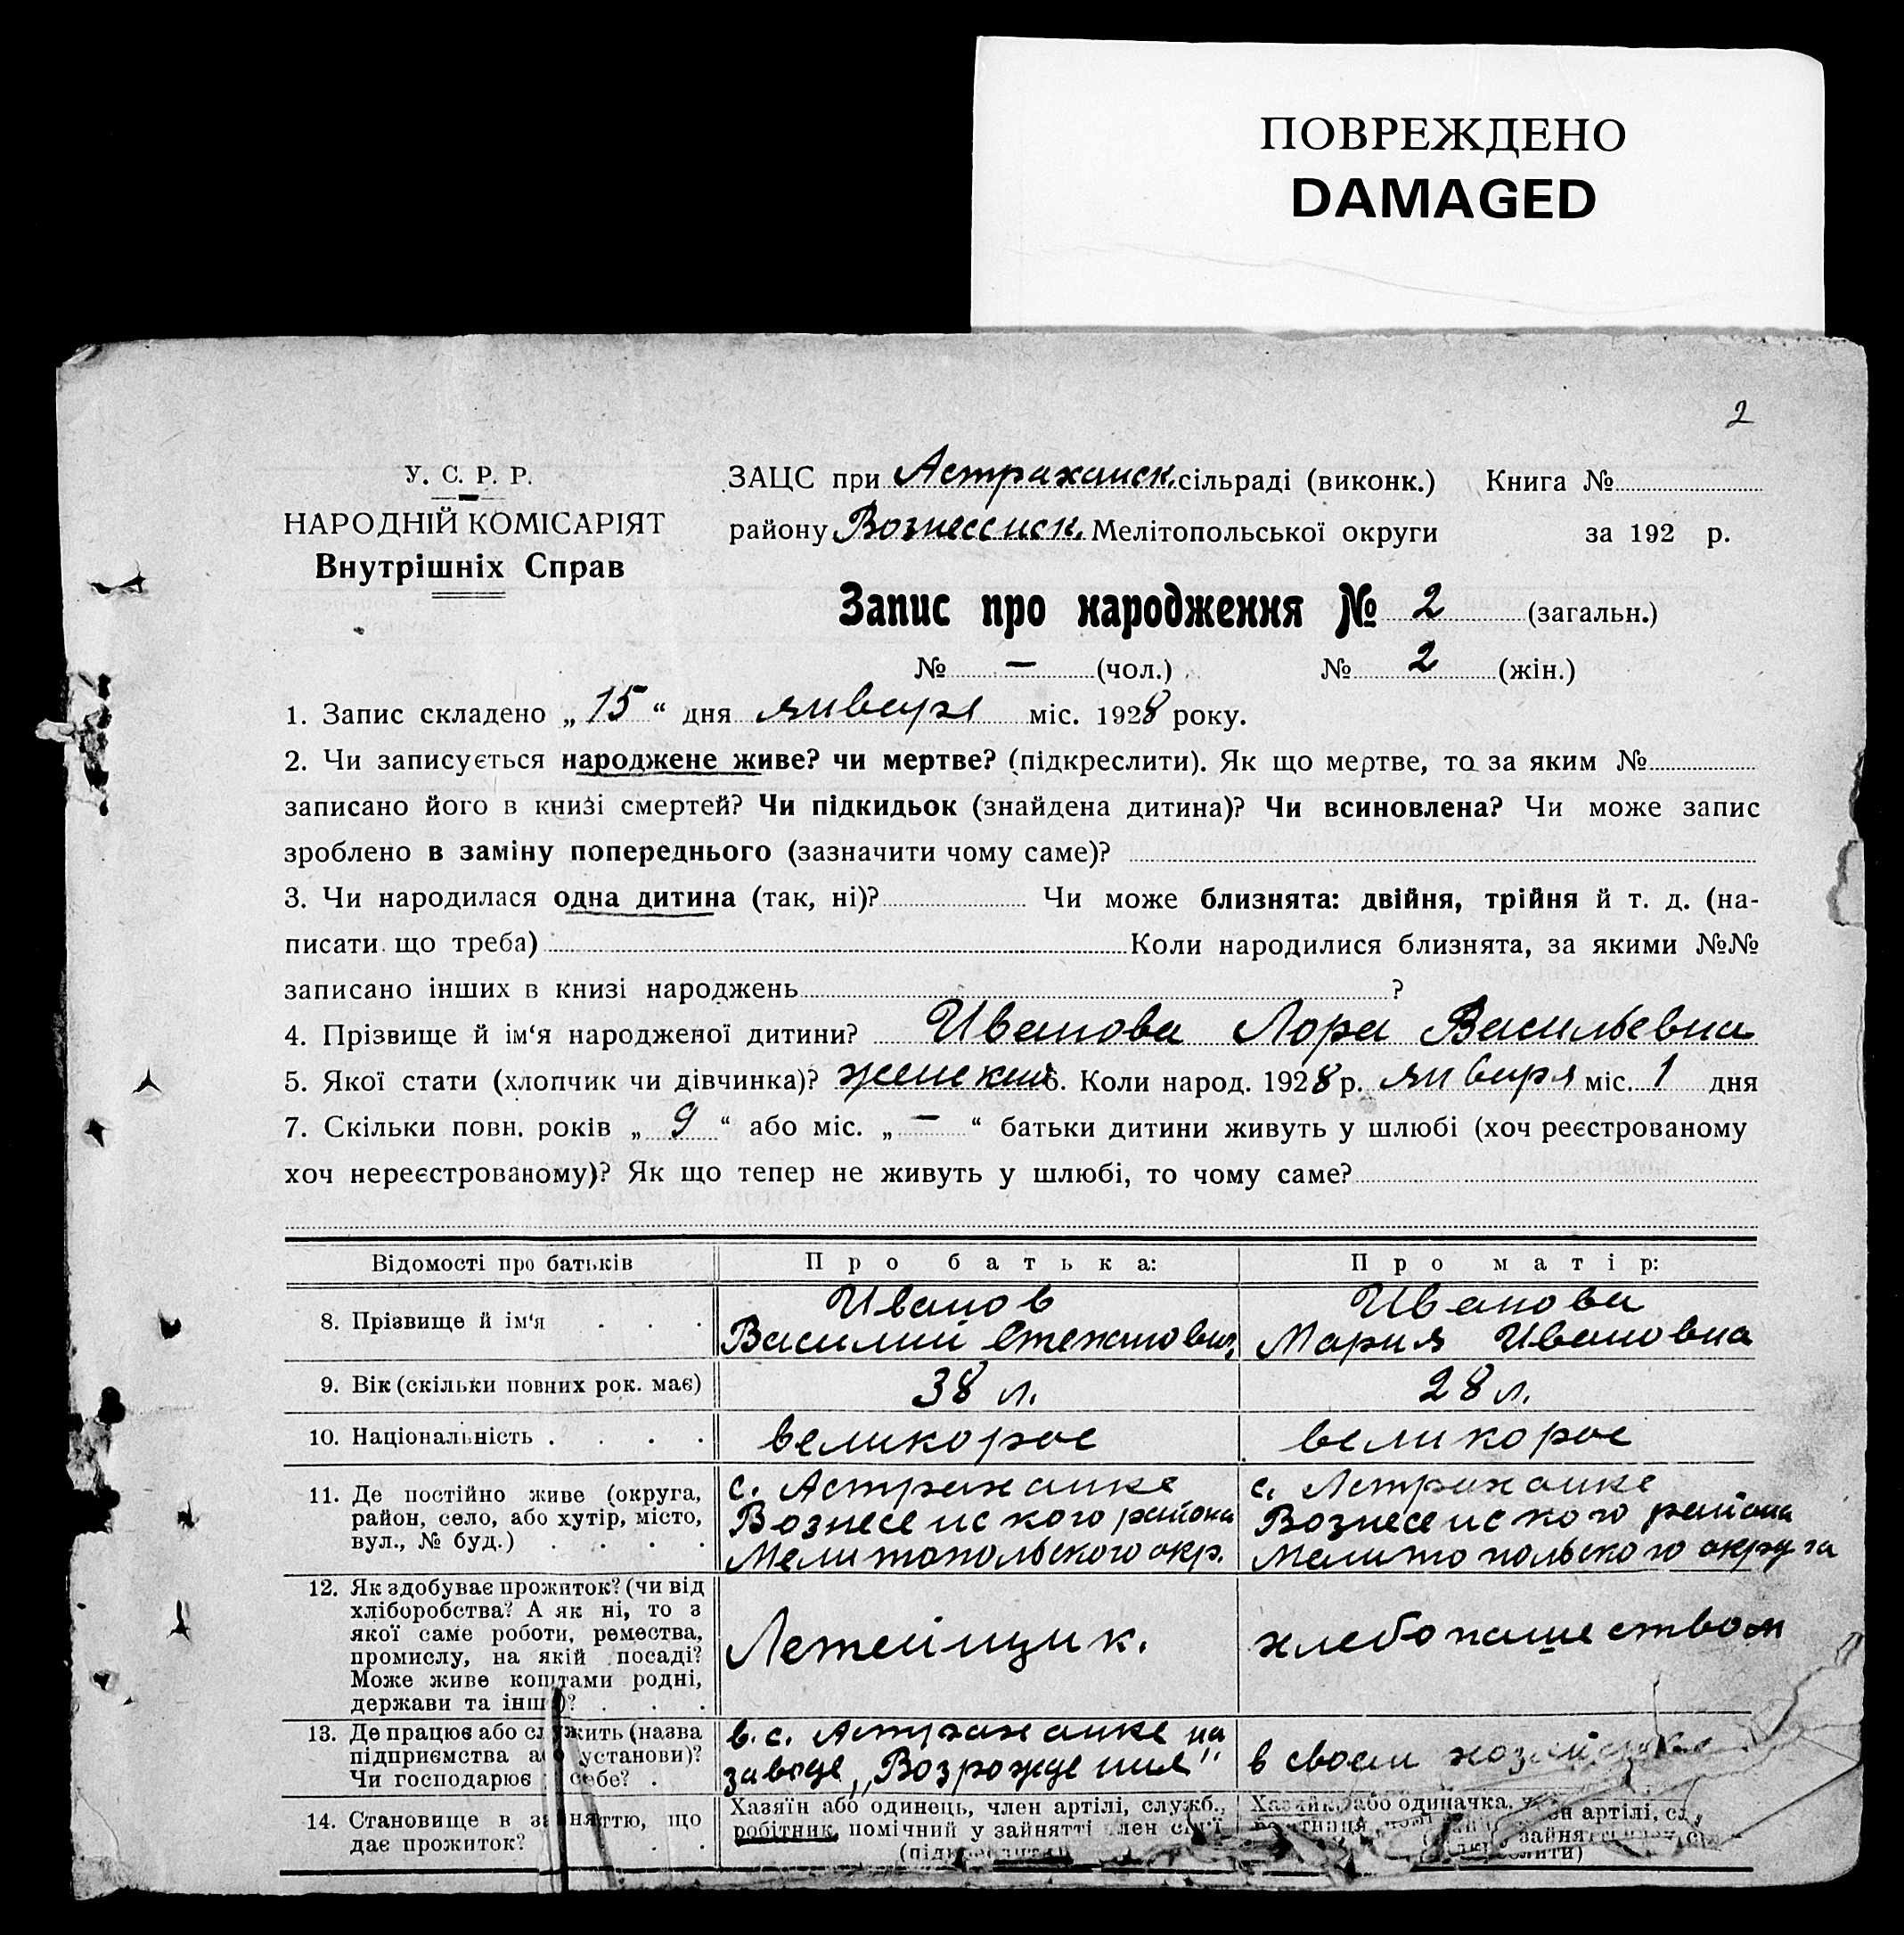 ПОВРЕЖДЕНО
DAMAGED
2
У. С. Р. Р.
НАРОДНІЙ КОМІСАРІЯТ
Внутрішніх Справ
ЗАЦС при Астраханск. сільраді (виконк.) Книга №
району Вознесенск. Мелітопольської округи за 192 р.
Запис про народження № 2 (загальн.)
№ — (чол.) № 2 (жін.)
1. Запис складено „15“ дня января міс. 1928 року.
2. Чи записується народжене живе? чи мертве? (підкреслити). Як що мертве, то за яким №
записано його в книзі смертей? Чи підкидьок (знайдена дитина)? Чи всиновлена? Чи може запис
зроблено в заміну попереднього (зазначити чому саме)?
3. Чи народилася одна дитина (так, ні)? Чи може близнята: двійня, трійня й т. д. (на-
писати що треба) Коли народилися близнята, за якими №№
записано інших в книзі народжень ?
4. Прізвище й ім‘я народженої дитини? Иванова Лора Васильевна
5. Якої стати (хлопчик чи дівчинка)? женский 6. Коли народ. 1928 р. января міс. 1 дня
7. Скільки повн. років „9“ або міс. „—“ батьки дитини живуть у шлюбі (хоч реєстрованому
хоч нереєстрованому)? Як що тепер не живуть у шлюбі, то чому саме?
Відомості про батьків Про батька: Про матір:
8. Прізвище й ім‘я . . .
Иванов
Василий Степанович
Иванова
Мария Ивановна
9. Вік (скільки повних рок. має) 38 л. 28 л.
10. Національність . . . . великорос великорос
11. Де постійно живе (округа,
район, село, або хутір, місто,
вул., № буд.) . . . .
с. Астраханке
Вознесенского района
Мелитопольского окр.
с. Астраханке
Вознесенского района
Мелитопольского округа
12. Як здобуває прожиток? (чи від
хліборобства? А як ні, то з
якої саме роботи, ремества,
промислу, на якій посаді?
Може живе коштами родні,
держави та інш.)? . . .
Летейщик.
хлебопашеством
13. Де працює або служить (назва
підприємства або установи)?
Чи господарює у себе? .
в с. Астраханке на
заводе „Возрождение"
в своем хозяйстве
14. Становище в зайняттю, що
дає прожиток? . .
Хазяїн або одинець, член артілі, служб.,
робітник, помічний у зайнятті член сім'ї
Хазяйка або одиначка, член артілі,